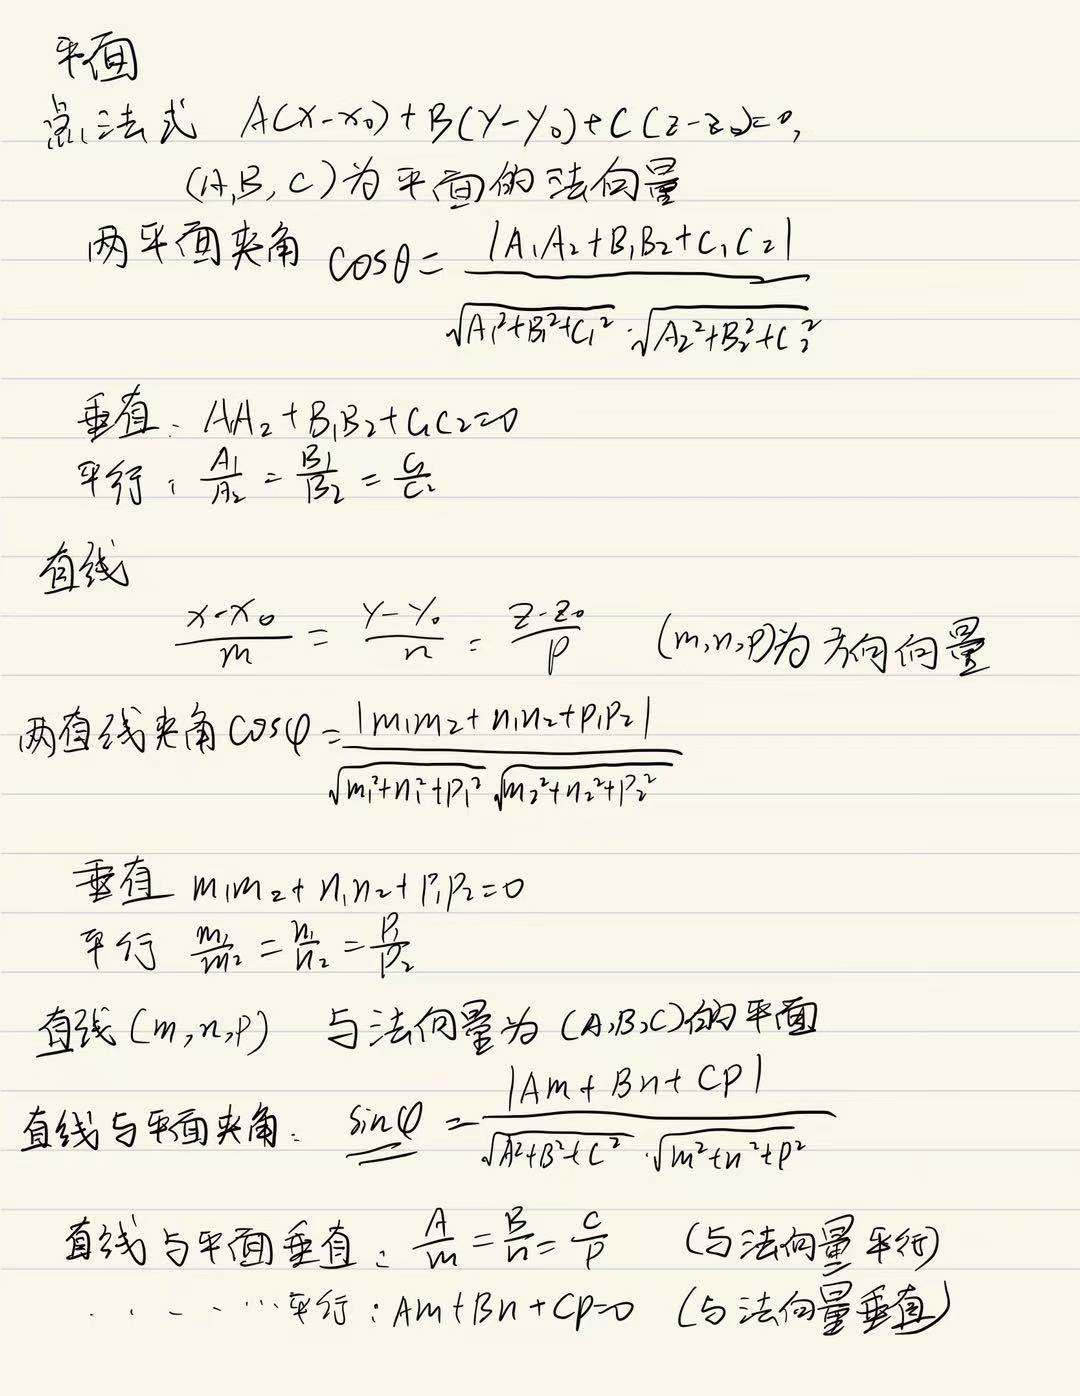 平面
点法式 A(x-x₀)+B(y-y₀)+C(z-z₀)=0,
(A,B,C)为平面的法向量
两平面夹角 cosθ = |A₁A₂+B₁B₂+C₁C₂| / √(A₁²+B₁²+C₁²)·√(A₂²+B₂²+C₂²)
垂直: A₁A₂+B₁B₂+C₁C₂=0
平行: A₁/A₂ = B₁/B₂ = C₁/C₂
直线
(x-x₀)/m = (y-y₀)/n = (z-z₀)/p (m,n,p)为方向向量
两直线夹角 cosφ = |m₁m₂+n₁n₂+p₁p₂| / √(m₁²+n₁²+p₁²) √(m₂²+n₂²+p₂²)
垂直 m₁m₂+n₁n₂+p₁p₂=0
平行 m₁/m₂ = n₁/n₂ = p₁/p₂
直线(m,n,p) 与法向量为(A,B,C)的平面
直线与平面夹角: sinφ = |Am+Bn+Cp| / √(A²+B²+C²)·√(m²+n²+p²)
直线与平面垂直: A/m = B/n = C/p (与法向量平行)
......平行: Am+Bn+Cp=0 (与法向量垂直)